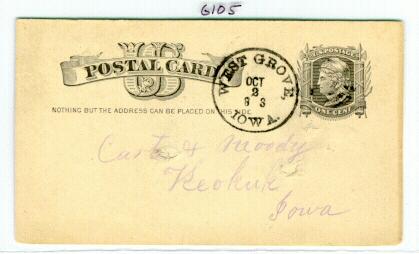 6105
US
POSTAL CARD
NOTHING BUT THE ADDRESS CAN BE PLACED ON THIS SIDE
WEST GROVE,
OCT
2
83
IOWA.
U.S. POSTAGE
ONE CENT
& Moody
Keokuk
Iowa